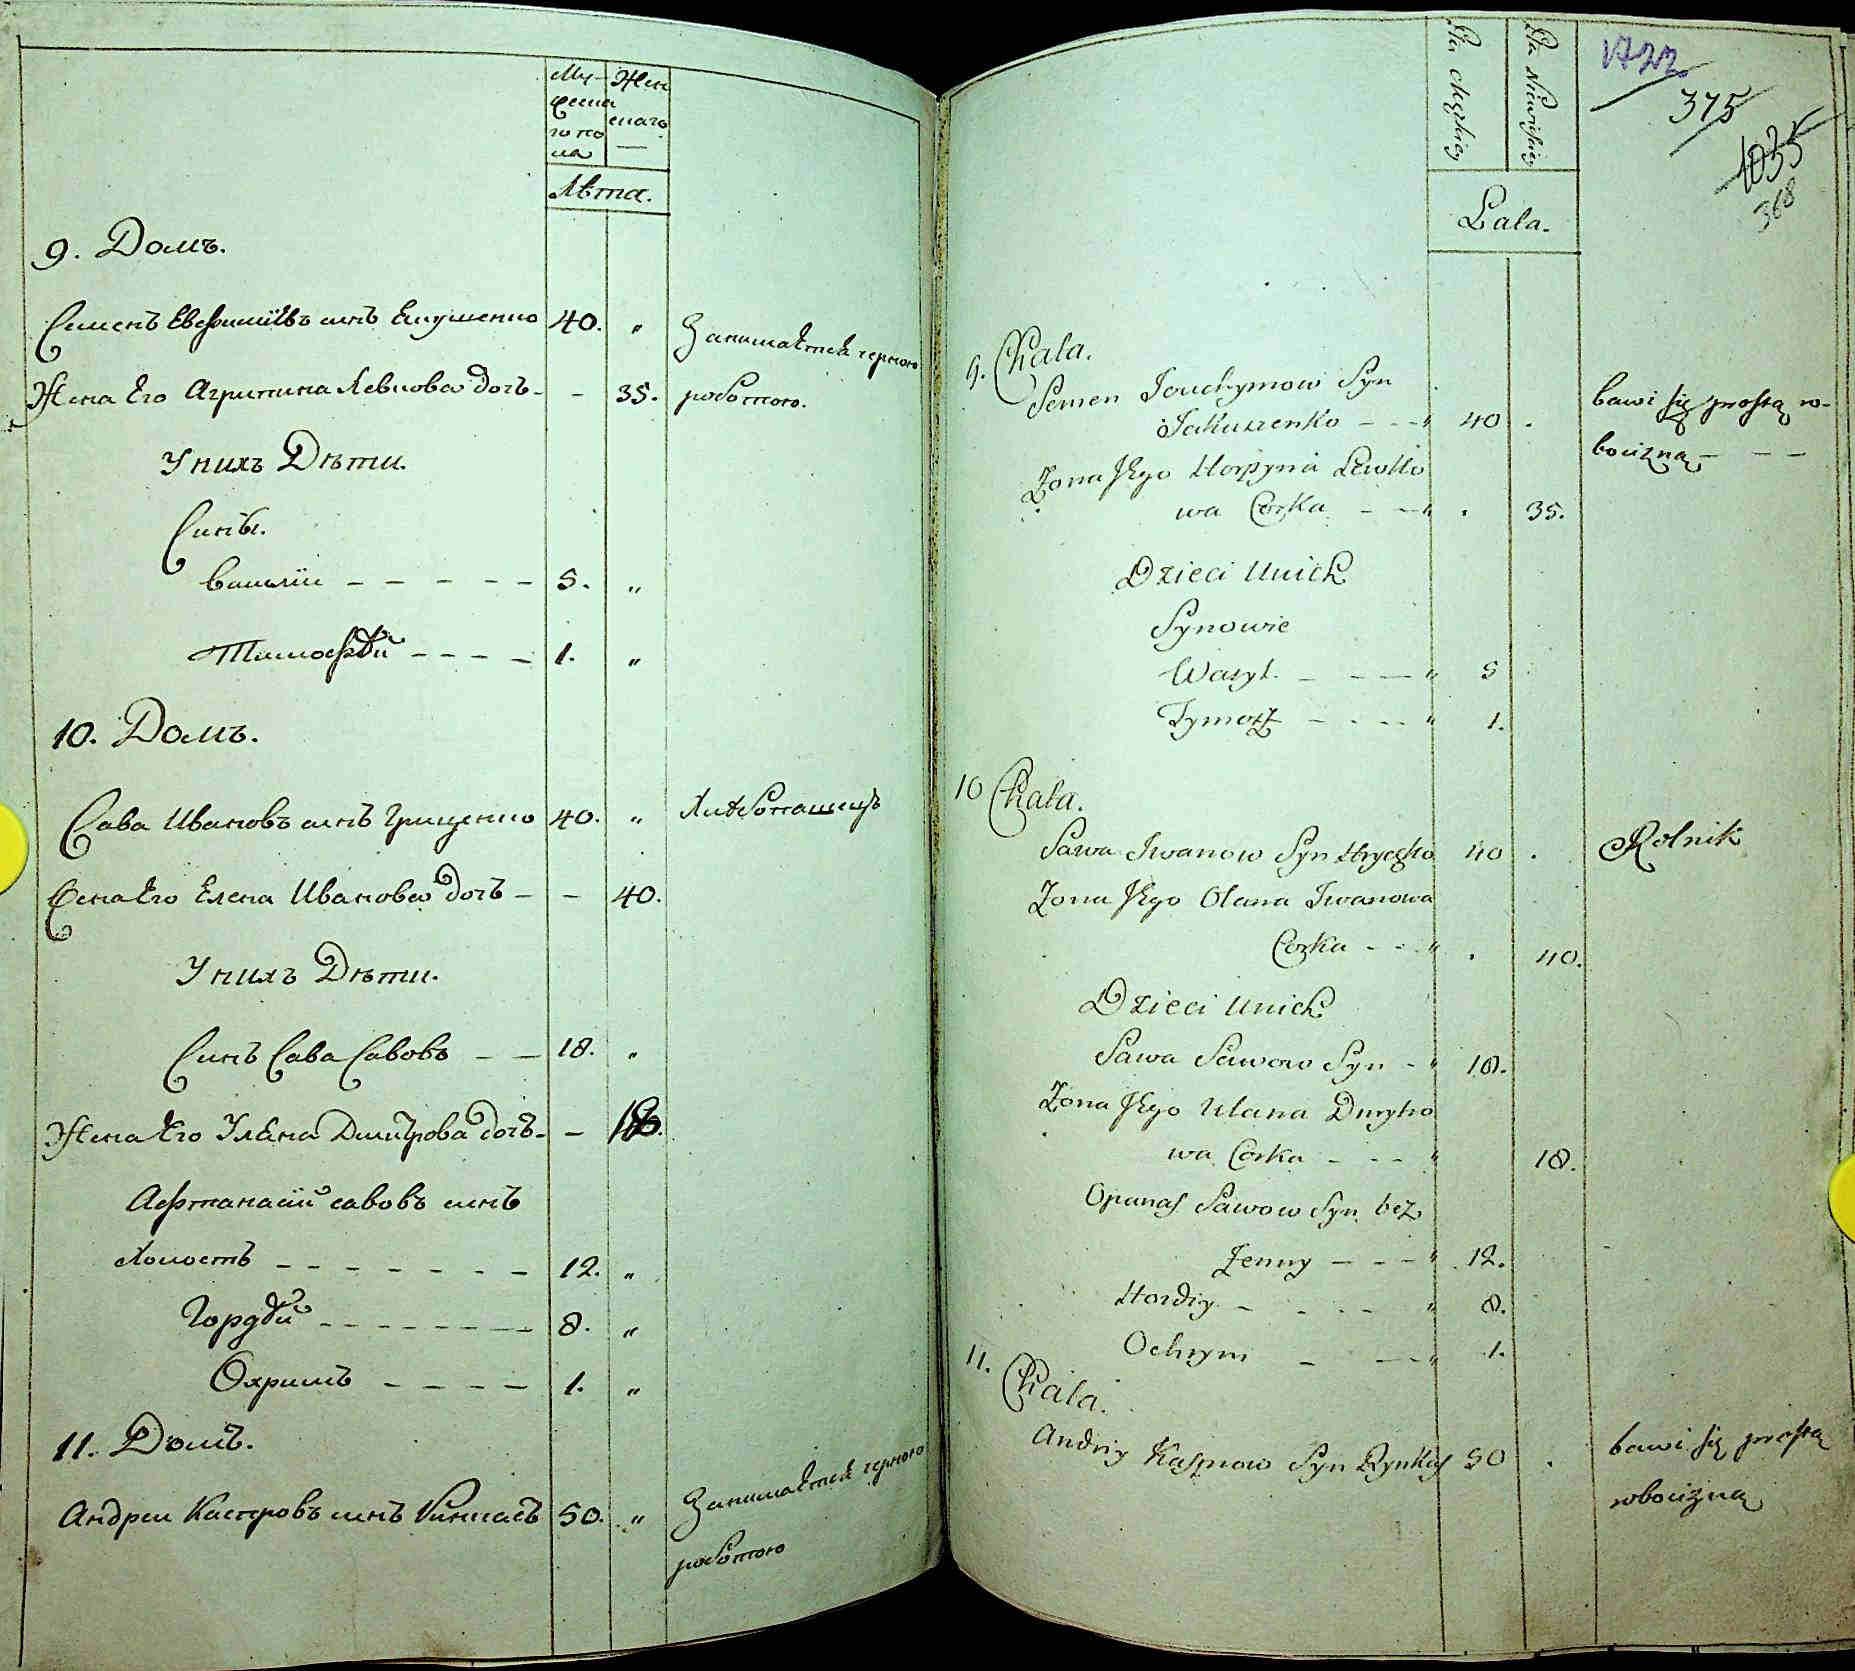 Му-
жеска
го по
ла
Жен
скаго
—
Лѣта.
9. Домъ.
Семенъ Евфимиївъ синъ Екушенко 40. "
Занимаєтся черною
Жена Его Агрипина Левкова дочъ - - 35.
роботою.
У нихъ Дѣти.
Сины.
Василїи - - - - - 5. "
Тимофѣй - - - - 1. "
10. Домъ.
Сава Ивановъ синъ Грищенко 40. "
Хлѣбопашецъ
Жена Его Елена Иванова дочъ - - 40.
У нихъ Дѣти.
Синъ Сава Савовъ - - 18. "
Жена Его Уляна Дмитрова дочъ - - 18.
Афтанасий савовъ синъ
холостъ - - - - - - - 12. "
Гордѣй - - - - - - - - 8. "
Охримъ - - - - 1. "
11. Домъ.
Андреи Каспровъ синъ Ринкасъ 50. "
Занимаєтся черною
роботою
Płci męzkiej
Płci Niewieściej
Lata.
1722
375
1035
368
9. Chata.
Semen Jouchymow Syn
Jakuszenko - - - " 40 .
bawi się prostą ro-
Żona Jego Horpyna Lewko
bocizną - - -
wa Corka - - - " . 35.
Dzieci Unich
Synowie
Wasyl. - - - - " 5
Tymosz - - - - " 1.
10 Chata.
Sawa Iwanow Syn Hryczko 40 .
Rolnik
Żona Jego Olana Iwanowa
Corka - - - " . 40.
Dzieci Unich
Sawa Sawow Syn - " 18.
Żona Jego Ulana Dmytro
wa Corka - - - " 18.
Opanas Sawow Syn bez
Żenny - - - " 12.
Hordiy - - - - " 8.
Ochrym - - - " 1.
11. Chata.
Andriy Kasprow Syn Rynkas 50 .
bawi się prostą
robocizną